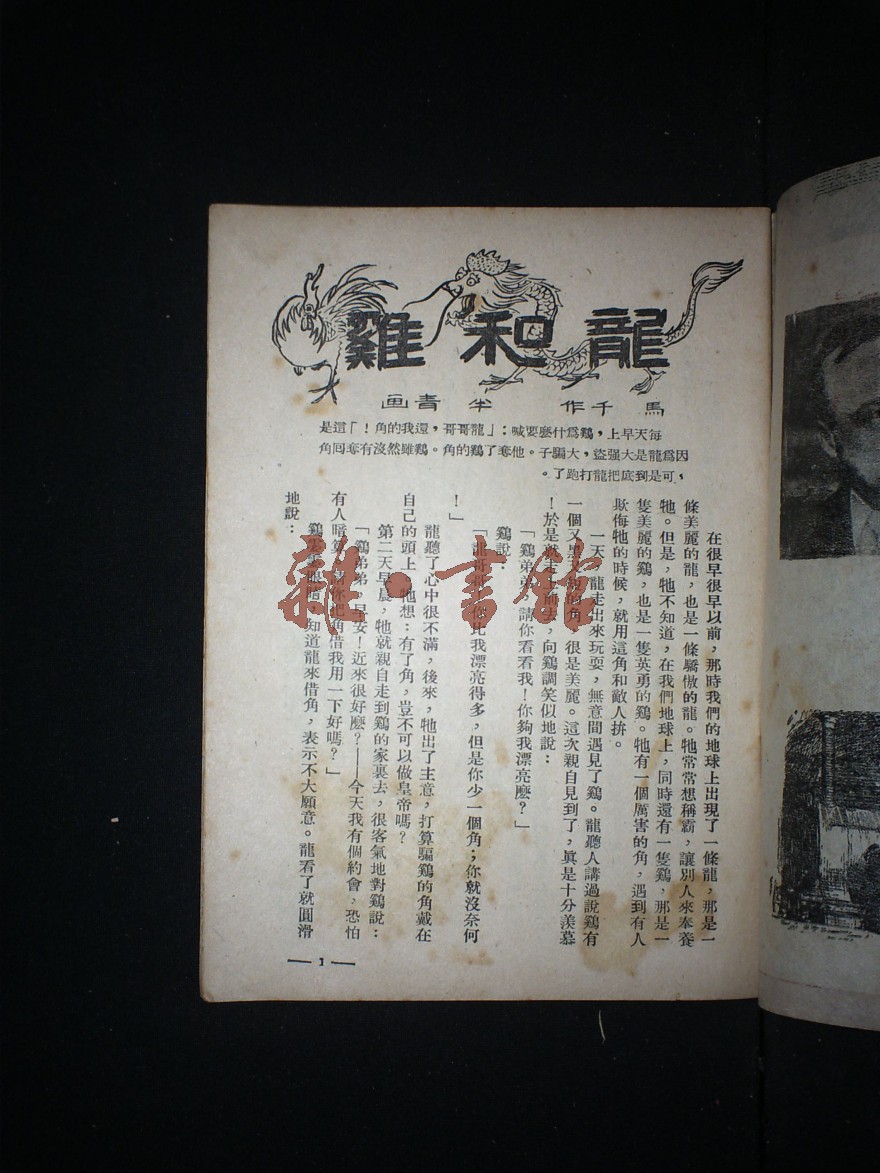 龍和雞
馬千作 半青画
每天早上，鷄爲什麽要喊：「龍哥哥，還我的角！」這是
因爲龍是大强盜，大騙子。他奪了鷄的角。鷄雖然沒有奪囘角
，可是到底把龍打跑了。
在很早很早以前，那時我們的地球上出現了一條龍，那是一
條美麗的龍，也是一條驕傲的龍。牠常常想稱霸，讓別人來奉養
牠。但是，牠不知道，在我們地球上，同時還有一隻鷄，那是一
隻美麗的鷄，也是一隻英勇的鷄。牠有一個厲害的角，遇到有人
欺侮牠的時候，就用這角和敵人拚。
一天，龍走出來玩耍，無意間遇見了鷄。龍聽人講過說鷄有
一個又黑又的角，很是美麗。這次親自見到了，眞是十分羨慕
！於是就走上前去，向鷄調笑似地說：
「鷄弟弟，請你看看我！你夠我漂亮麽？」
鷄說：
「龍哥哥，你比我漂亮得多，但是你少一個角；你就沒奈何
！」
龍聽了心中很不滿，後來，牠出了主意，打算騙鷄的角戴在
自己的頭上，牠想：有了角，豈不可以做皇帝嗎？
第二天早晨，牠就親自走到鷄的家裏去，很客氣地對鷄說：
「鷄弟弟，早安！近來很好麽？——今天我有個約會，恐怕
有人暗算，請你把角借我用一下好嗎？」
鷄眼睛，知道龍來借角，表示不大願意。龍看了就圓滑
地說：
— 1 —
雜·書館